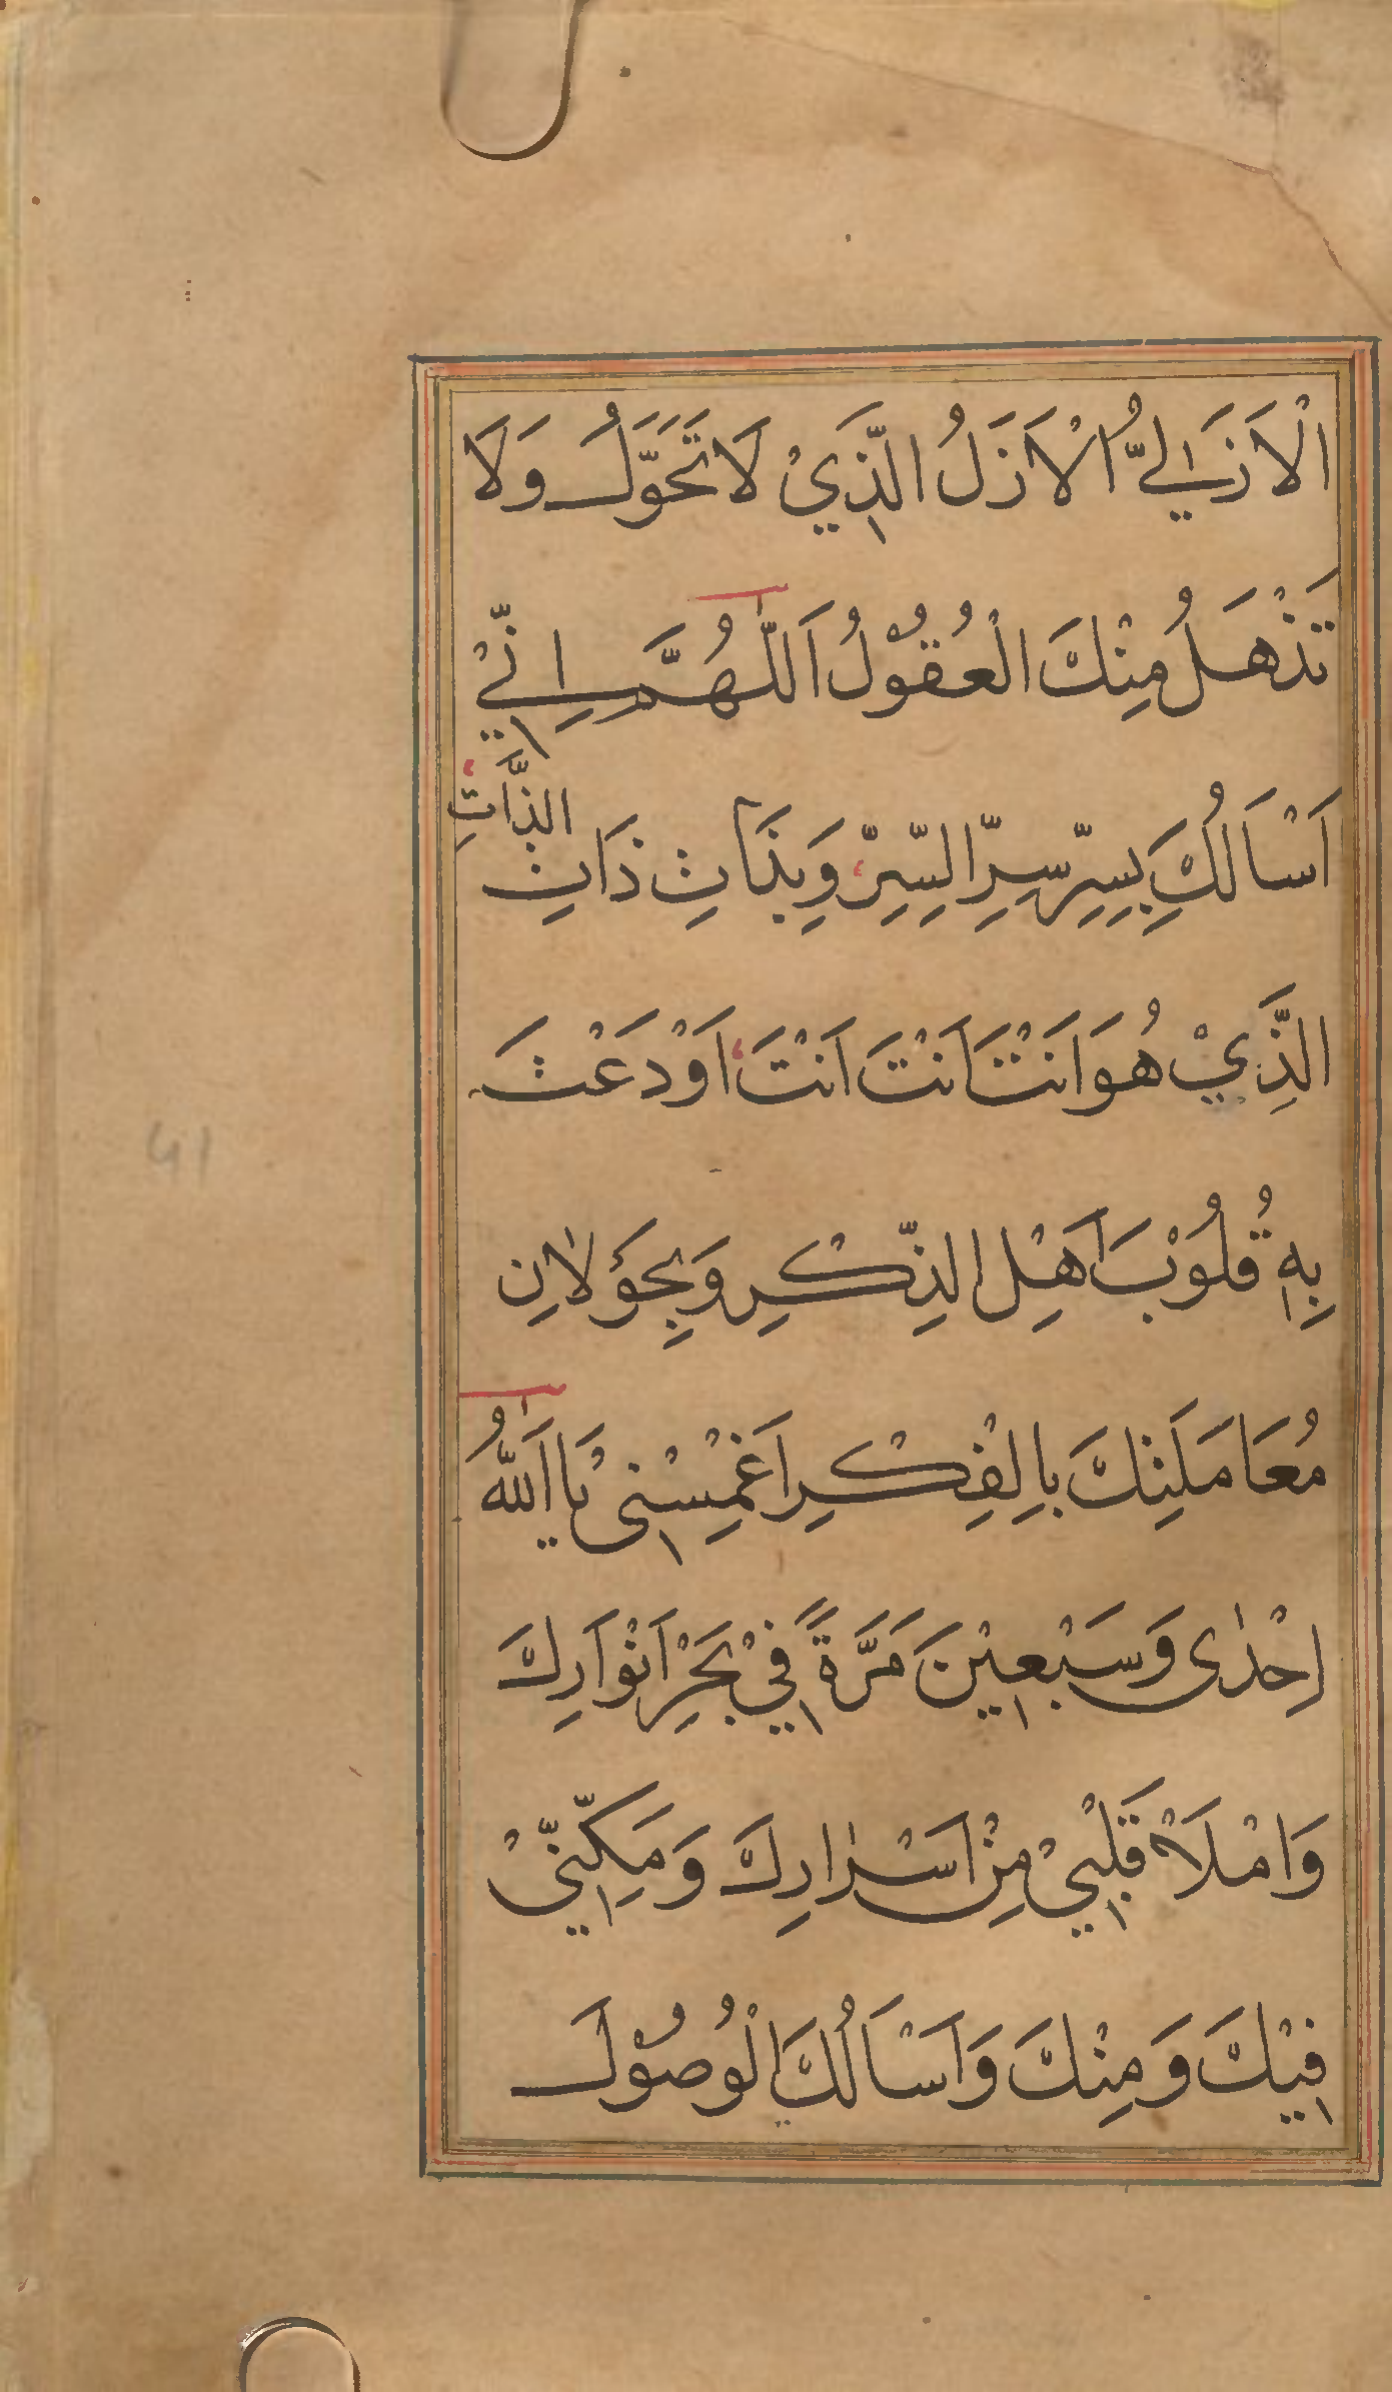 الْاَزَلِيُّ الْاَزَلُ الَّذِيْ لَا تَحَوَّلُ وَلَا
تَذْهَلُ مِنْكَ الْعُقُوْلُ اَللّٰهُمَّ اِنِّيْ
اَسْاَلُكَ بِسِرِّ سِرِّ السِّرِّ وَبِذَاتِ ذَاتِ الذَّاتِ
الَّذِيْ هُوَ اَنْتَ اَنْتَ اَنْتَ اَوْدَعْتَ
بِهِ قُلُوْبَ اَهْلِ الذِّكْرِ وَبِجَوَلَانِ
مُعَامَلَتِكَ بِالْفِكْرِ اَغْمِسْنِى يَا اَللّٰهُ
اِحْدٰى وَسَبْعِيْنَ مَرَّةً فِيْ بَحْرِ اَنْوَارِكَ
وَامْلَاْ قَلْبِيْ مِنْ اَسْرَارِكَ وَمَكِّنِّيْ
فِيْكَ وَمِنْكَ وَاَسْاَلُكَ الْوُصُوْلَ
41